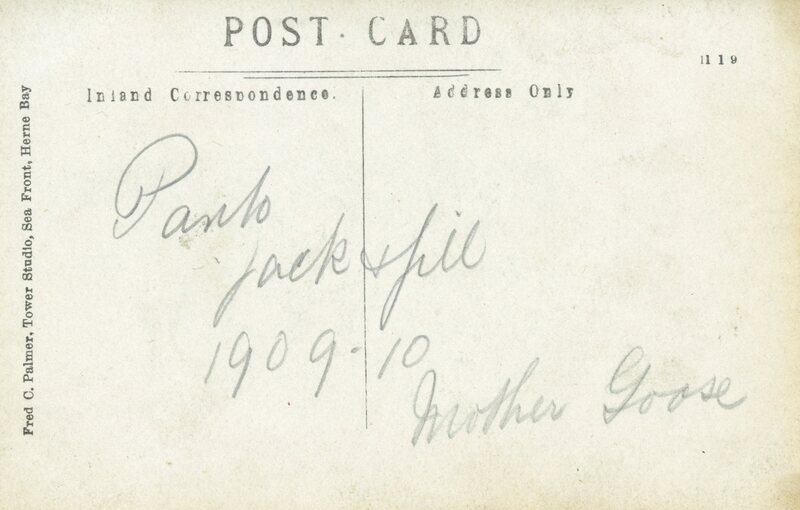 POST · CARD
1119
Inland Correspondence.
Address Only
Fred C. Palmer, Tower Studio, Sea Front, Herne Bay
Panto
Jack & Jill
1909-10
Mother Goose